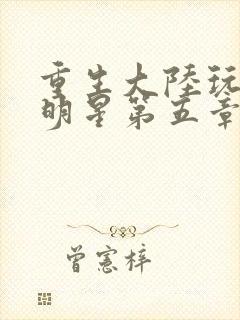 重生大陸玩
明星第五章
曾憲梓